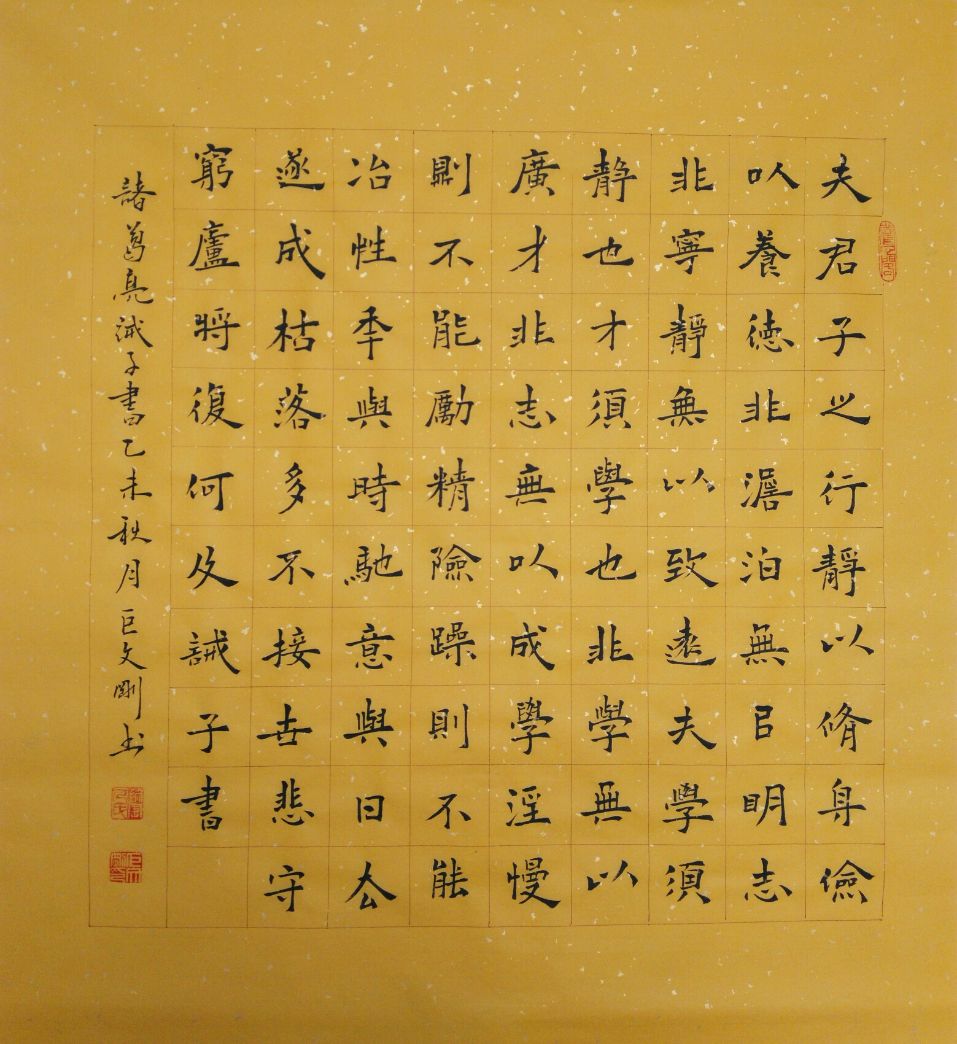 夫君子之行靜以脩身儉
以養德非澹泊無㠯明志
非寧靜無以致遠夫學須
静也才須學也非學無以
廣才非志無以成學淫慢
則不能勵精險躁則不能
冶性年與時馳意與日去
遂成枯落多不接世悲守
窮廬將復何及誡子書
諸葛亮誡子書乙未秋月巨文剛书